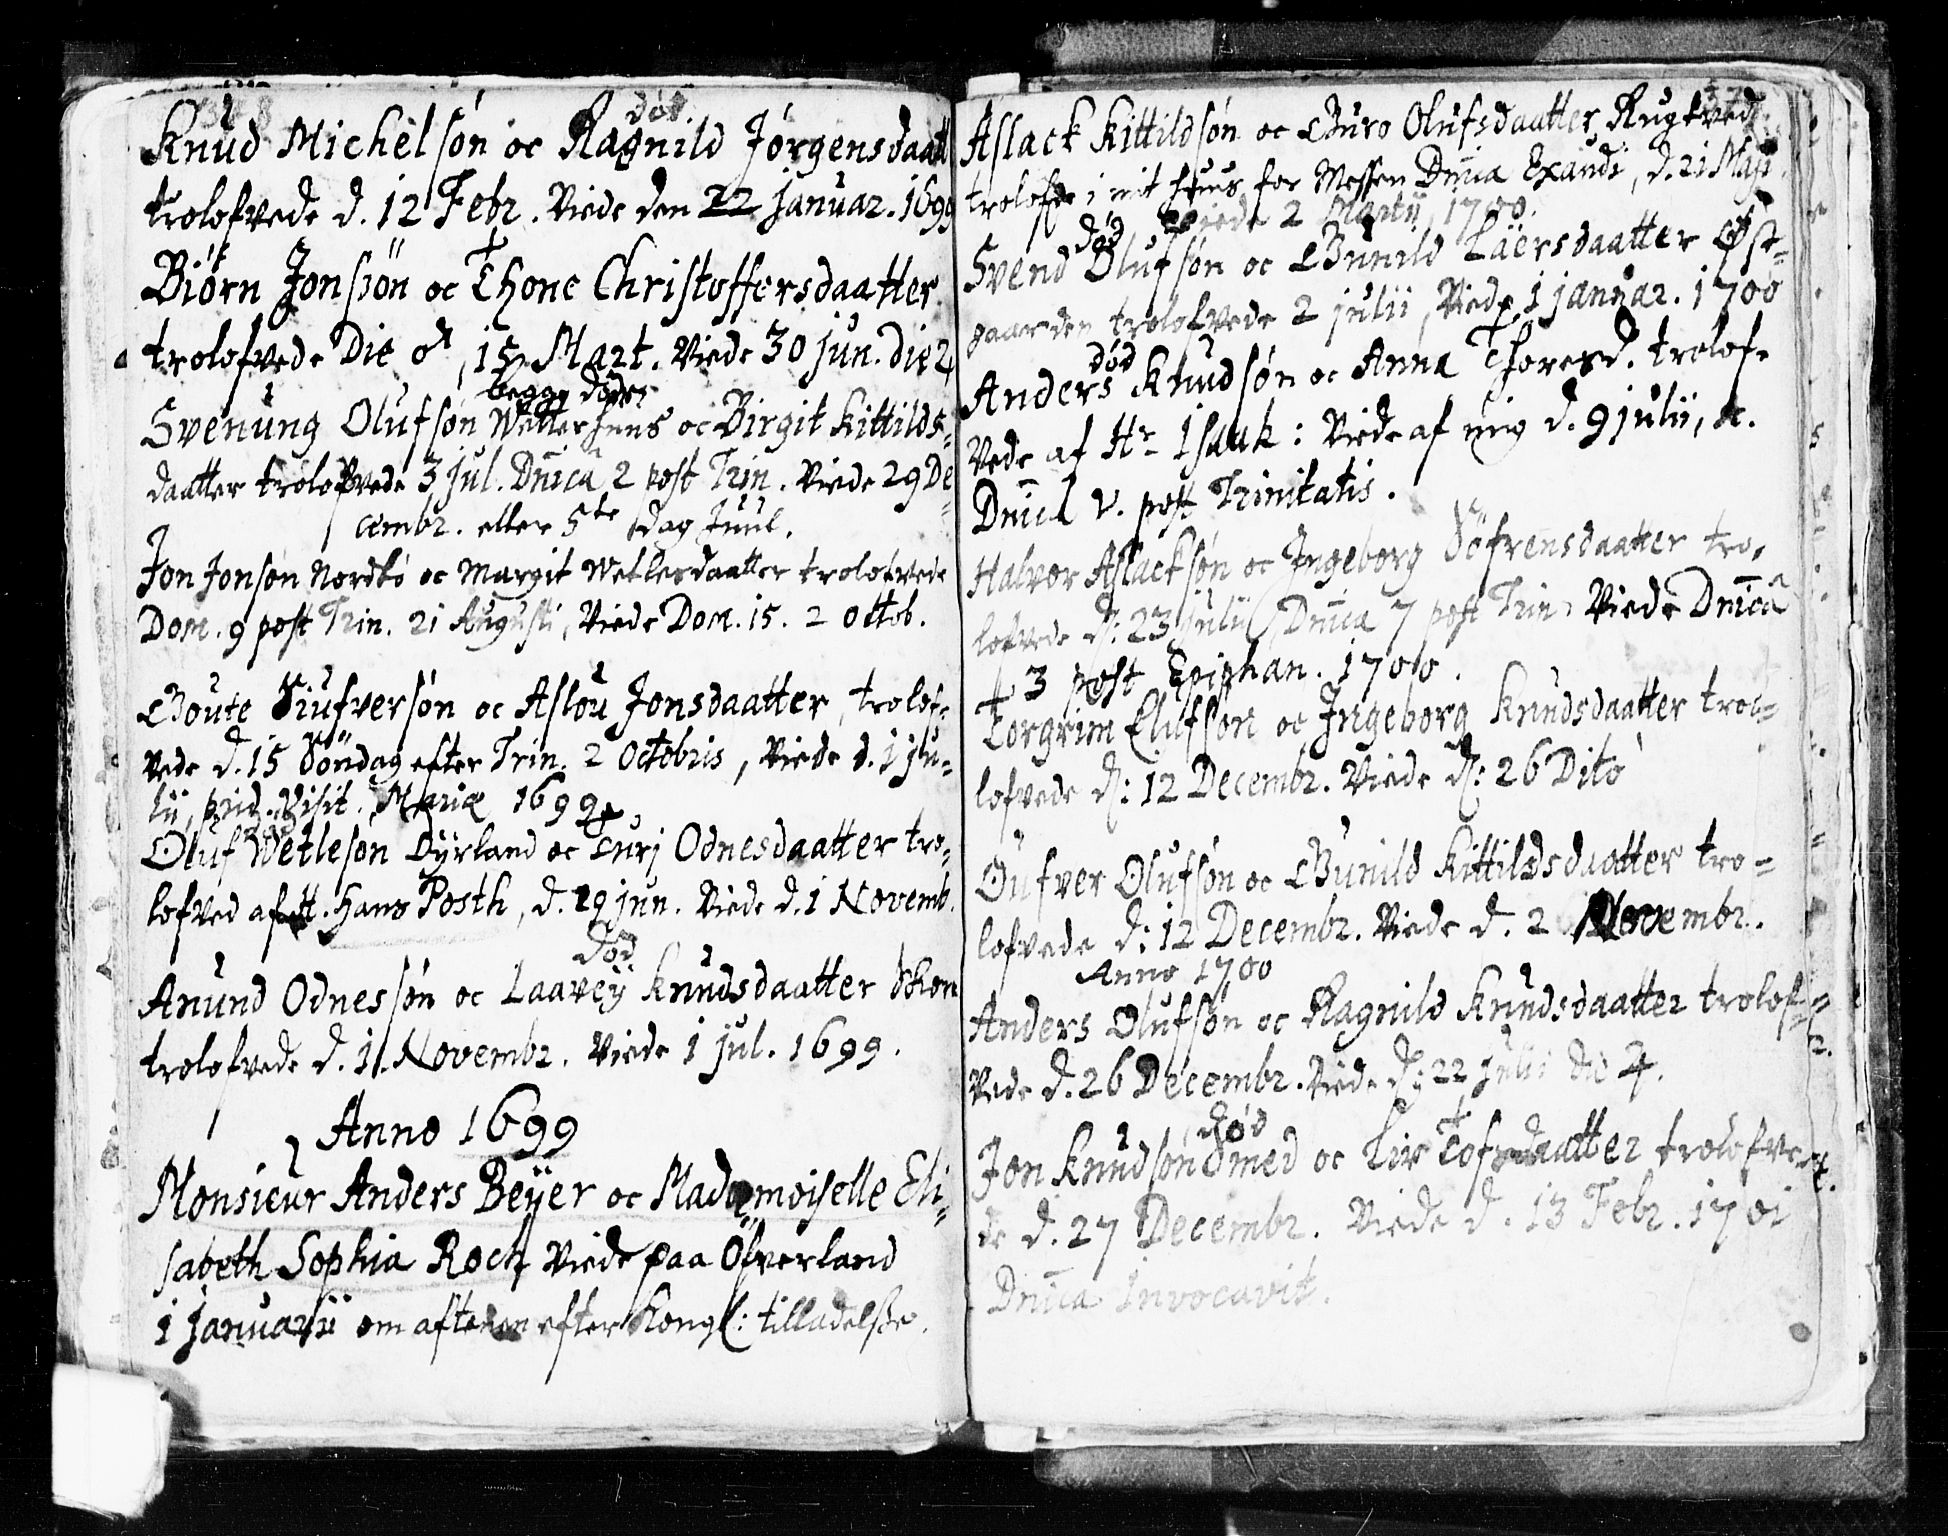 död
Knud Michelsøn oc Ragnild Jørgensdaatt
trolofvede d. 12 Febr. Viede den 22 Januar. 1699
Biørn Jonsøn oc Thone Christoffersdaatter
trolofvede Die ♂, 15 Mart. Viede 30 Jun. die 4
begge døde
Svenung Olufsøn Wetterhuus oc Birgit Kittilds-
daatter trolofvede 3 Jul. Dnica 2 post Trin. Viede 29 De-
cembr. eller 5te Dag Juul.
Jon Jonsøn Nordbø oc Margit Wetlesdaatter trolofvede
Dom. 9 post Trin. 21 Augusti, Viede Dom. 15. 2 Octob.
Goute Siufversøn oc Aslou Jonsdaatter, trolof-
vede d. 15 Söndag efter Trin. 2 Octobris, Viede d. 1 Ju-
lii, prid. Visit. Mariæ 1699
Oluf Wetlesøn Dyrland oc Turj Odnesdaatter tro-
lofved af H. Hans Posth, d. 29 Jun. Viede d. 1 Novemb.
Död
Anund Odnessøn oc Laavey Knudsdaatter Skon
trolofvede d. 1. Novembr. Viede 1 Jul. 1699.
Anno 1699
Monsieur Anders Beÿer oc Mademoiselle Eli-
sabeth Sophia Roch Viede paa Öfverland
1 Januarii om aftenen efter Kongl: tilladelsze.
Aslack Kittildsøn oc Guro Olufsdaatter Rugtved
trolofde i mit Huus for Messen Dnica Exaudi, d. 21 Maji.
Viede 2 Martii, 1700.
död
Svend Olufsøn oc Gunild Läersdaatter Øst-
gaarden trolofvede 2 Julii, Viede 1 Januar. 1700
död
Anders Knudsøn oc Anna Thoresd. trolof-
vede af Hr Isaak: Viede af mig d. 9 Julii,
Dnica V. post Trinitatis.
Halvor Aslacksøn oc Ingeborg Söfrensdaatter tro-
lofvede d: 23 Julii Dnica 7 post Trin. Viede Dnica
3 post Epiphan. 1700.
Torgrim Elufsøn oc Ingeborg Knudsdaatter tro-
lofvede d: 12 Decembr. Viede d: 26 Dito
Oufver Olufsøn oc Gunild Kittildsdaatter tro-
lofvede d: 12 Decembr. Viede d. 2 Novembr.
Anno 1700
Anders Olufsøn oc Ragnild Knudsdaatter trolof-
vede d. 26 Decembr. Viede d: 22 Julii die ♃.
död
Jon Knudsøn Smed oc Liv daatter trolofve-
de d. 27 Decembr. Viede d. 13 Febr. 1701
Dnica Invocavit.